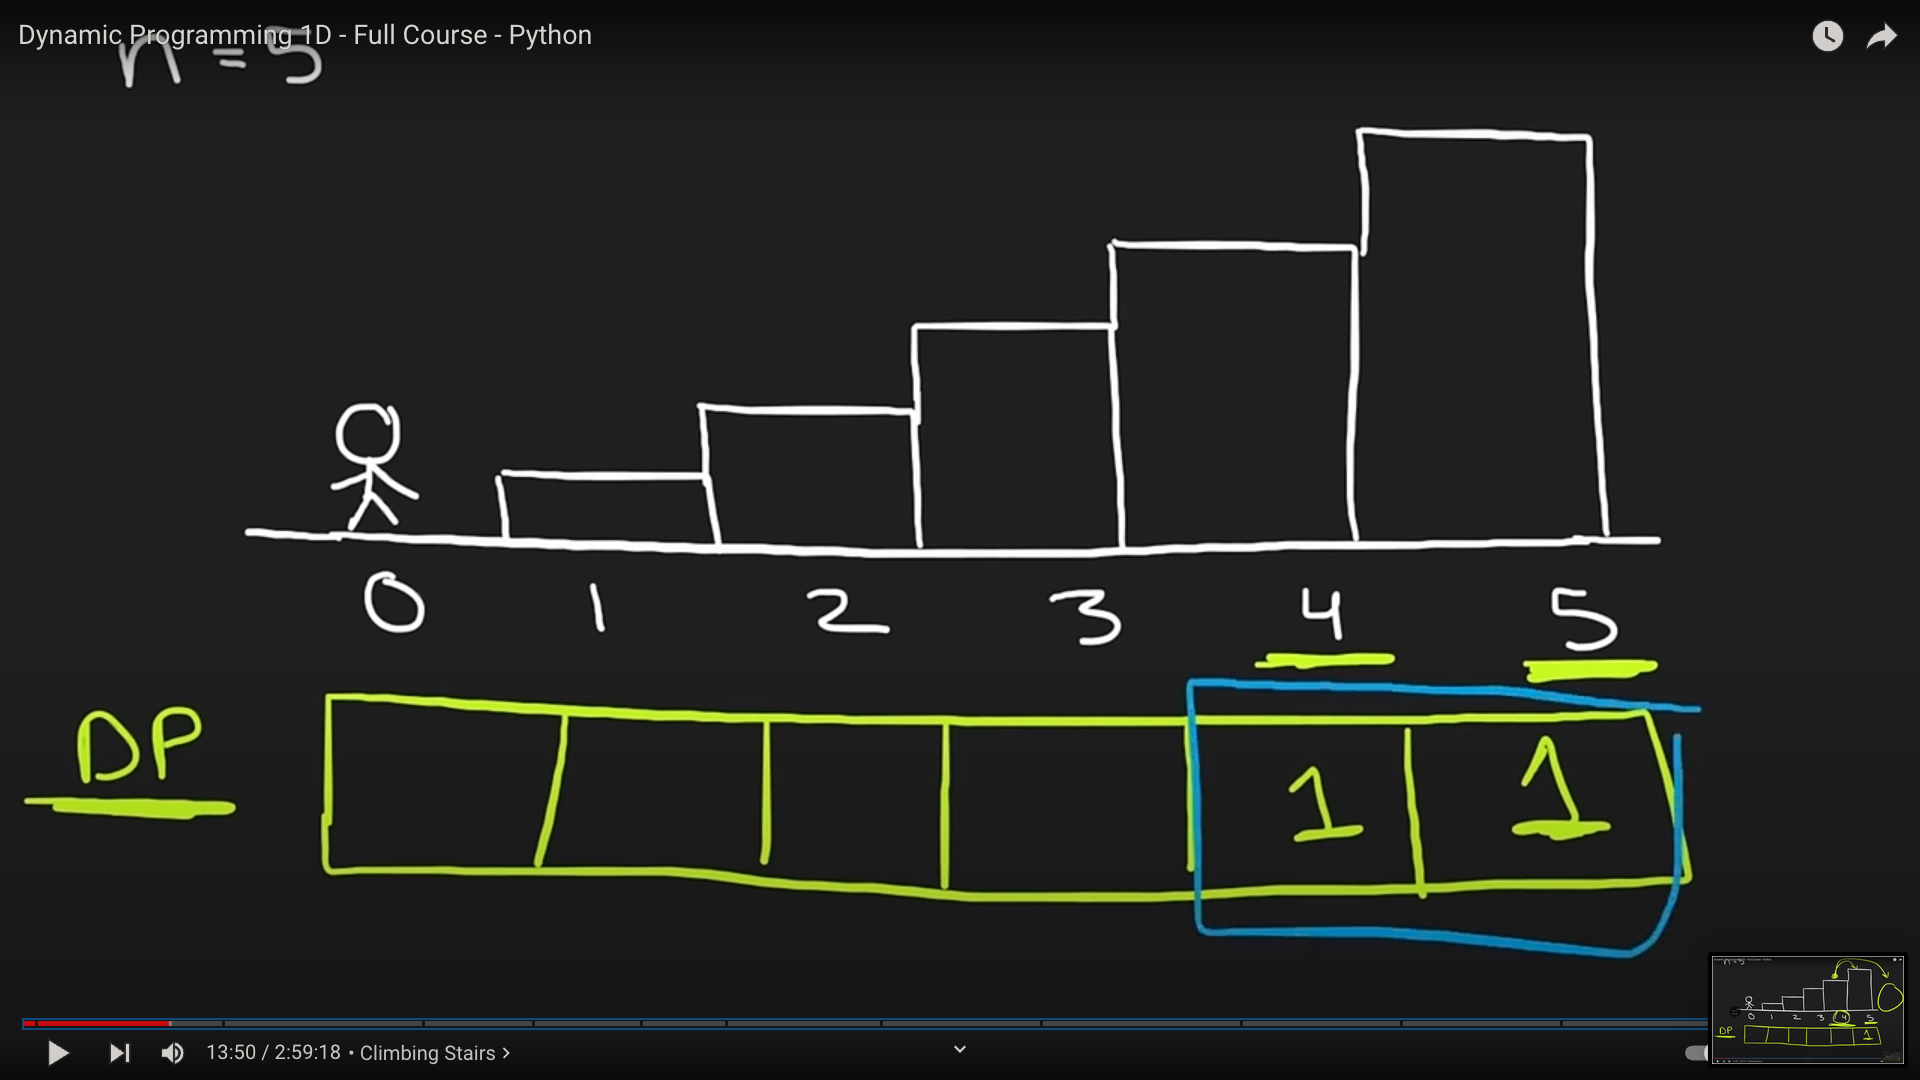 Dynamic Programming 1D - Full Course - Python
n = 5
0 1 2 3 4 5
DP 1 1
13:50 / 2:59:18 • Climbing Stairs >
0 1 2 3 4 5
DP 1